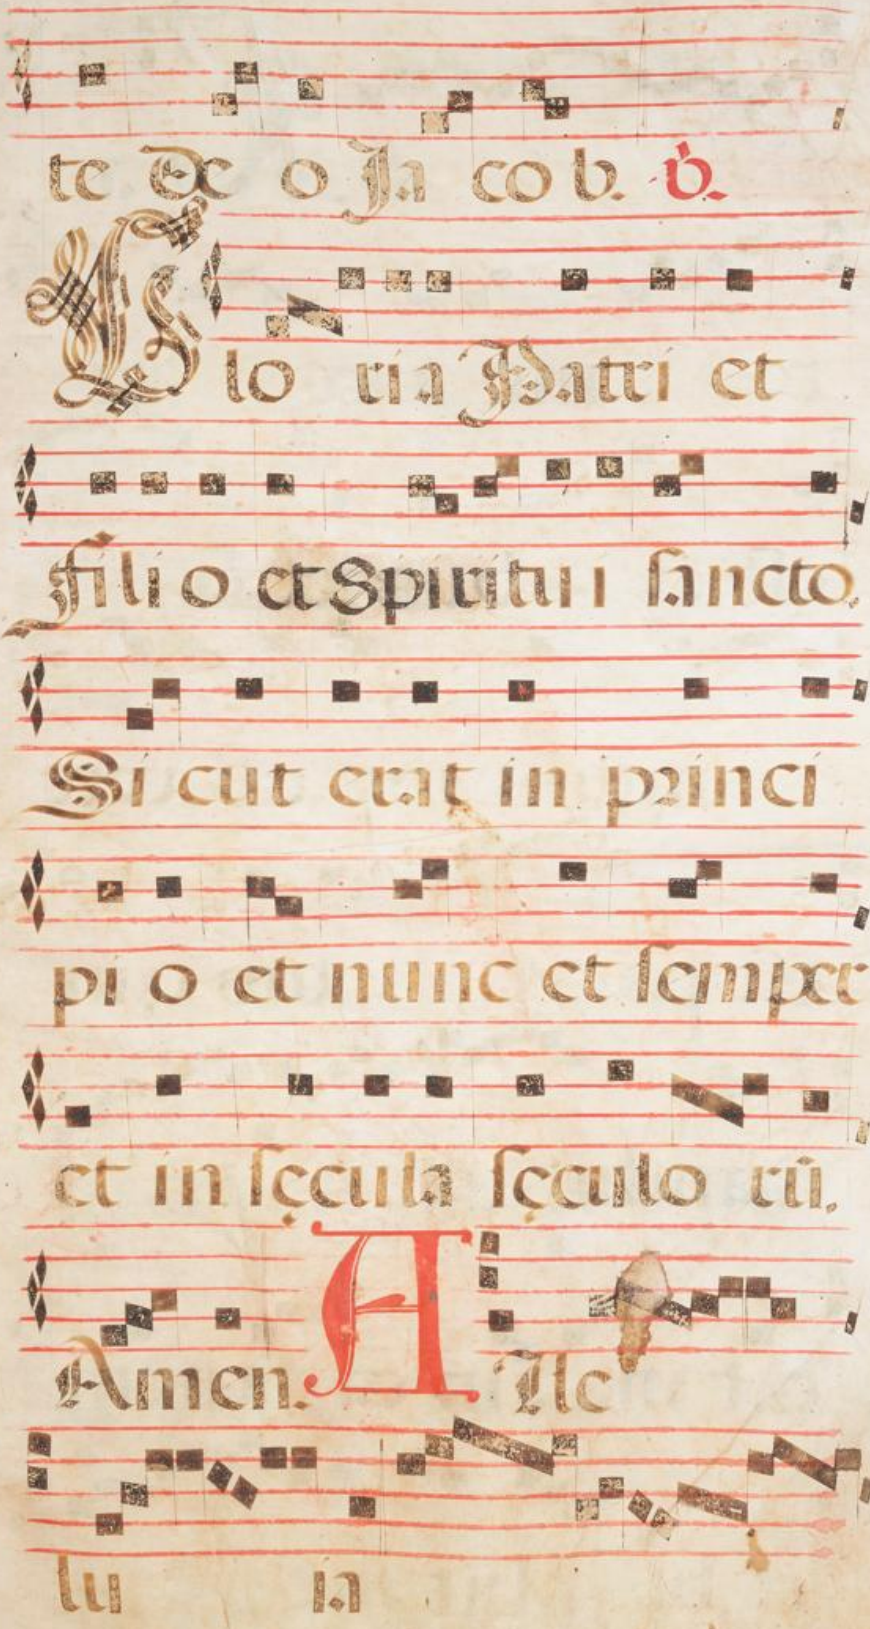 te De o Ja cob. V.
Glo ria Patri et
Fili o et Spiritui sancto.
Si cut erat in princi
pi o et nunc et semper
et in sęcula sęculo rū.
Amen. A lle
lu ia